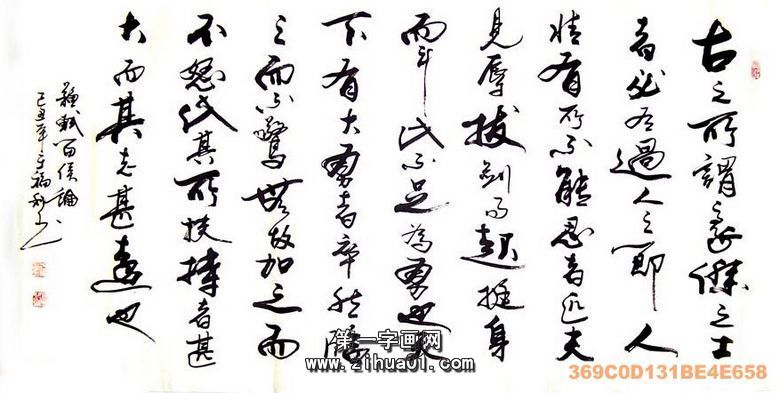 古之所謂豪傑之士
者必有過人之節人
情有所不能忍者匹夫
見辱拔劍而起挺身
而斗此不足為勇也天
下有大勇者卒然臨
之而不驚無故加之而
不怒此其所挾持者甚
大而其志甚遠也
蘇軾留侯論
己丑年
第一字画网
www.zihua01.com
369C0D131BE4E658